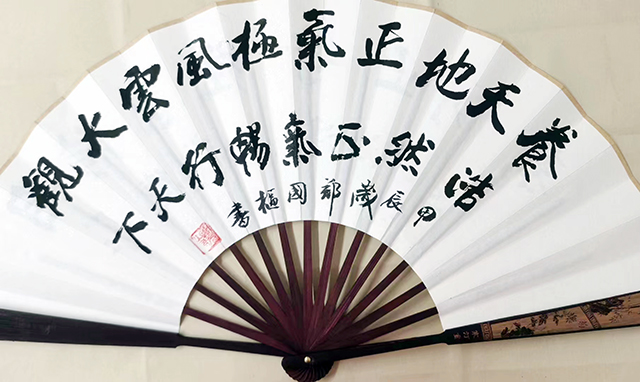 養天地正氣極風雲大觀
浩然正氣暢行天下
甲辰歲國樞書